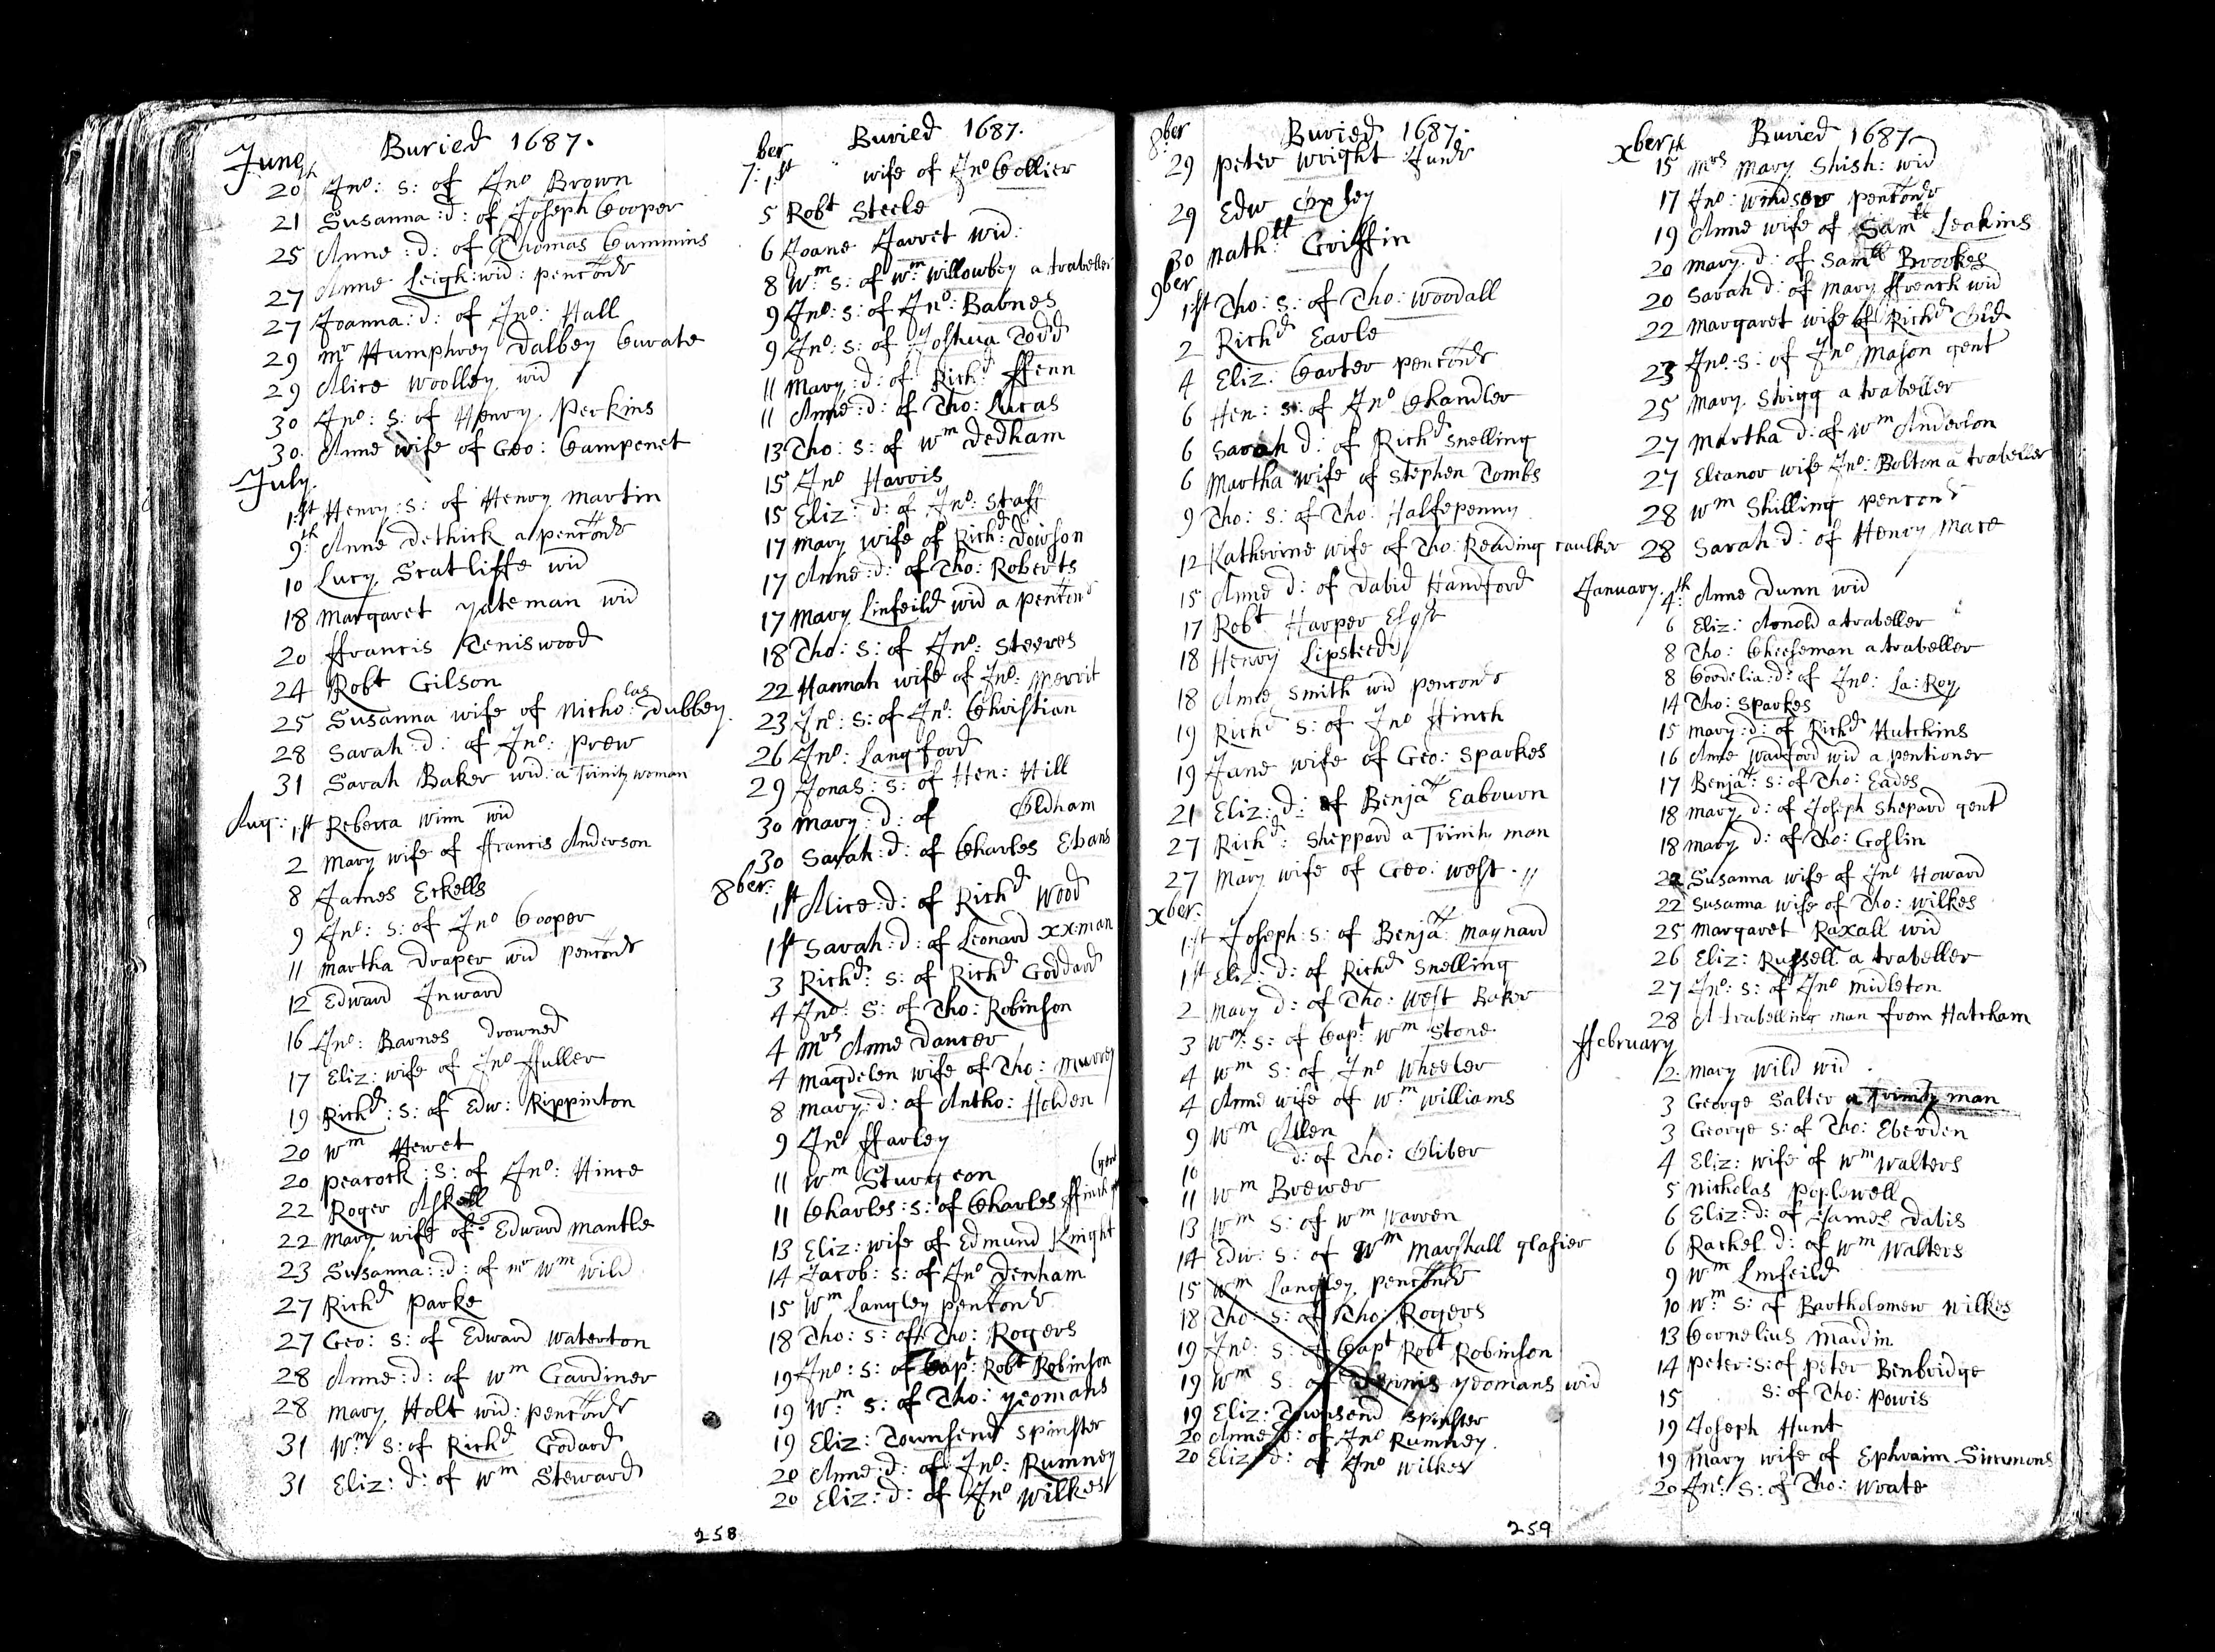 Buried 1687.
June
20th Jno: s: of Jno Brown
21 Susanna: d: of Joseph Cooper
25 Anne: d: of Thomas Cummins
27 Anne Leigh: wid: pencondr
27 Joanna: d: of Jno: Hall
29 Mr Humphrey Dalbey Curate
29 Alice Woolley wid
30 Jno: s: of Henry Perkins
30. Anne wife of Geo: Campenet
July.
1:st Henry: s: of Henry Martin
9:th Anne Dethick a pencondr
10 Lucy Scatliffe wid
18 Margaret Yateman wid
20 ffrancis Teniswood
24 Robt Gilson
25 Susanna wife of Nicholas: Dubbey.
28 Sarah: d: of Jno: Prew
31 Sarah Baker wid: a Trinity woman
Aug:
1st Rebecca Winn wid
2 Mary wife of ffrancis Anderson
8 James Eckells
9 Jno: s: of Jno Cooper
11 Martha Draper wid pencondr
12 Edward Inward
16 Jno: Barnes drowned
17 Eliz: wife of Jno ffuller
19 Richd: s: of Edw: Rippinton
20 Wm Hewet
20 Peacock: s: of Jno: Hince
22 Roger Askell
22 Mary wife of Edward Mantle
23 Susanna: d: of mr Wm Wild
27 Richd Parke
27 Geo: s: of Edward Waterton
28 Anne: d: of Wm Gardiner
28 Mary Holt wid: pencondr
31 Wm s: of Richd Godard
31 Eliz: d: of Wm Steward
Buried 1687.
7:ber
1:st wife of Jno Collier
5 Robt Steele
6 Joane Jarret wid:
8 Wm: s: of Wm: Willowbey a traveller
9 Jno: s: of Jno: Barnes
9 Jno: s: of Joshua Todd
11 Mary: d: of Richd ffenn
11 Anne: d: of Tho: Lucas
13 Tho: s: of Wm Dedham
15 Jno Harris
15 Eliz: d: of Jno: Staff
17 Mary wife of Richd: Dowson
17 Anne: d: of Tho: Roberts
17 Mary Linfeild wid a pencond
18 Tho: s: of Jno: Steeres
22 Hannah wife of Jno: Merrit
23 Jno: s: of Jno: Christian
26 Jno: Langford
29 Jonas: s: of Hen: Hill
30 Mary: d: of Oldham
30 Sarah: d: of Charles Evans
8ber:
1st Alice: d: of Richd Wood
1st Sarah: d: of Leonard xxman
3 Richd: s: of Richd Goddard
4 Jno: s: of Tho: Robinson
4 Mrs Anne Dancer
4 Magdelen wife of Tho: Murrey
8 Mary: d: of Antho: Holden
9 Jno ffarley
11 Wm Sturgeon
11 Charles: s: of Charles ffinch gent
13 Eliz: wife of Edmund Knight
14 Jacob: s: of Jno Denham
15 Wm Langley pencondr
18 Tho: s: of Tho: Rogers
19 Jno: s: of Capt: Robt Robinson
19 Wm: s: of Tho: Yeomans
19 Eliz: Townsend Spinster
20 Anne: d: of Jno: Rumney
20 Eliz: d: of Jno Wilkes
258
Buried 1687.
8:ber
29 Peter Wright Junr
29 Edw Copley
30 Nath:ll Griffin
9ber
1:st Tho: s: of Tho: Woodall
2 Richd Earle
4 Eliz: Carter pencondr
6 Hen: s: of Jno Chandler
6 Sarah d: of Richd Snelling
6 Martha wife of Stephen Tombs
9 Tho: s: of Tho: Halfepenny
12 Katherine wife of Tho: Reading caulker
15 Anne d: of David Handford
17 Robt Harper Esqr
18 Henry Lipsteed
18 Anne Smith wid pencondr
19 Richd s: of Jno Hinch
19 Jane wife of Geo: Sparkes
21 Eliz: d: of Benja Eabourn
27 Richd: Sheppard a Trinity man
27 Mary wife of Geo: West.
xber:
1:st Joseph: s: of Benja: Maynard
1st Eliz: d: of Richd Snelling
2 Mary d: of Tho: West Baker
3 Wm: s: of Capt Wm Stone
4 Wm s: of Jno Wheeler
4 Anne wife of Wm Williams
9 Wm Allen
10 d: of Tho: Oliver
11 Wm Brewer
13 Wm s: of Wm Warren
14 Edw: s: of Wm Marshall glasier
15 Wm Langley pencondr
18 Tho: s: of Tho: Rogers
19 Jno: s: of Capt Robt Robinson
19 Wm s: of Yeomans wid
19 Eliz: Townsend Spinster
20 Anne d: of Jno Rumney.
20 Eliz: d: of Jno Wilkes
259
Buried 1687
xber
15th Mrs Mary Shish: wid
17 Jno: Windsor pencondr
19 Anne wife of Samll Leakins
20 Mary d: of Samll Brookes
20 Sarah d: of Mary ffrench wid
22 Margaret wife of Richd Old
23 Jno: s: of Jno Mason gent
25 Mary Shigg a traveller
27 Martha d: of Wm Anderson
27 Eleanor wife Jno: Bolton a traveller
28 Wm Shilling pencondr
28 Sarah: d: of Henry Mace
January.
4:th Anne Dunn wid
6 Eliz: Arnold a traveller
8 Tho: Cheeseman a traveller
8 Cordelia: d: of Jno: La: Roy
14 Tho: Sparkes
15 Mary: d: of Richd Hutchins
16 Anne Wadford wid a pentioner
17 Benja: s: of Tho: Eades
18 Mary d: of Joseph Shepard gent
18 Mary d: of Tho: Goslin
22 Susanna wife of Jno Howard
22 Susanna wife of Tho: Wilkes
25 Margaret Raxall wid
26 Eliz: Russell a traveller
27 Jno: s: of Jno Midleton
28 A travelling man from Hatcham
ffebruary
2 Mary Wild wid
3 George Salter a Trinity man
3 George s: of Tho: Everden
4 Eliz: wife of Wm Walters
5 Nicholas Poplewell
6 Eliz: d: of James Davis
6 Rachel d: of Wm Walters
9 Wm Linfeild
10 Wm: s: of Bartholomew Wilkes
13 Cornelius Mardin
14 Peter: s: of Peter Binbridge
15 s: of Tho: Powis
19 Joseph Hunt
19 Mary wife of Ephraim Simmons
20 Jno: s: of Tho: Wrate